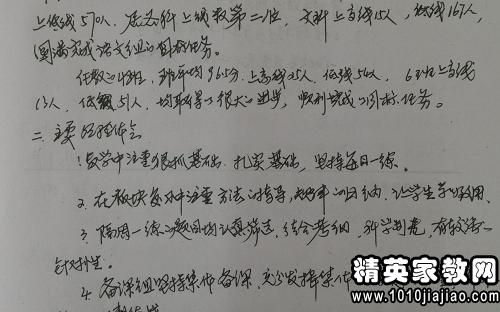 上低线570人,居各科上线数第二位,文科上高线15人,低线167人,
圆满完成语文组的目标任务。
任教的4班,班平均96.5分,上高线25人,低线54人,6班上高线
13人,低线51人,均取得了很大的进步,顺利完成了目标任务。
二、主要的经验体会
1.教学中注重狠抓基础,扎实基础,坚持每日一练。
2.在板块复习中注重方法的指导,规律的归纳,让学生学以致用。
3.隔周一练的题目均认真筛选,结合考纲,科学制卷,有较强的
针对性。
4.备课组坚持集体备课,充分发挥集体
精英家教网
www.1010jiajiao.com